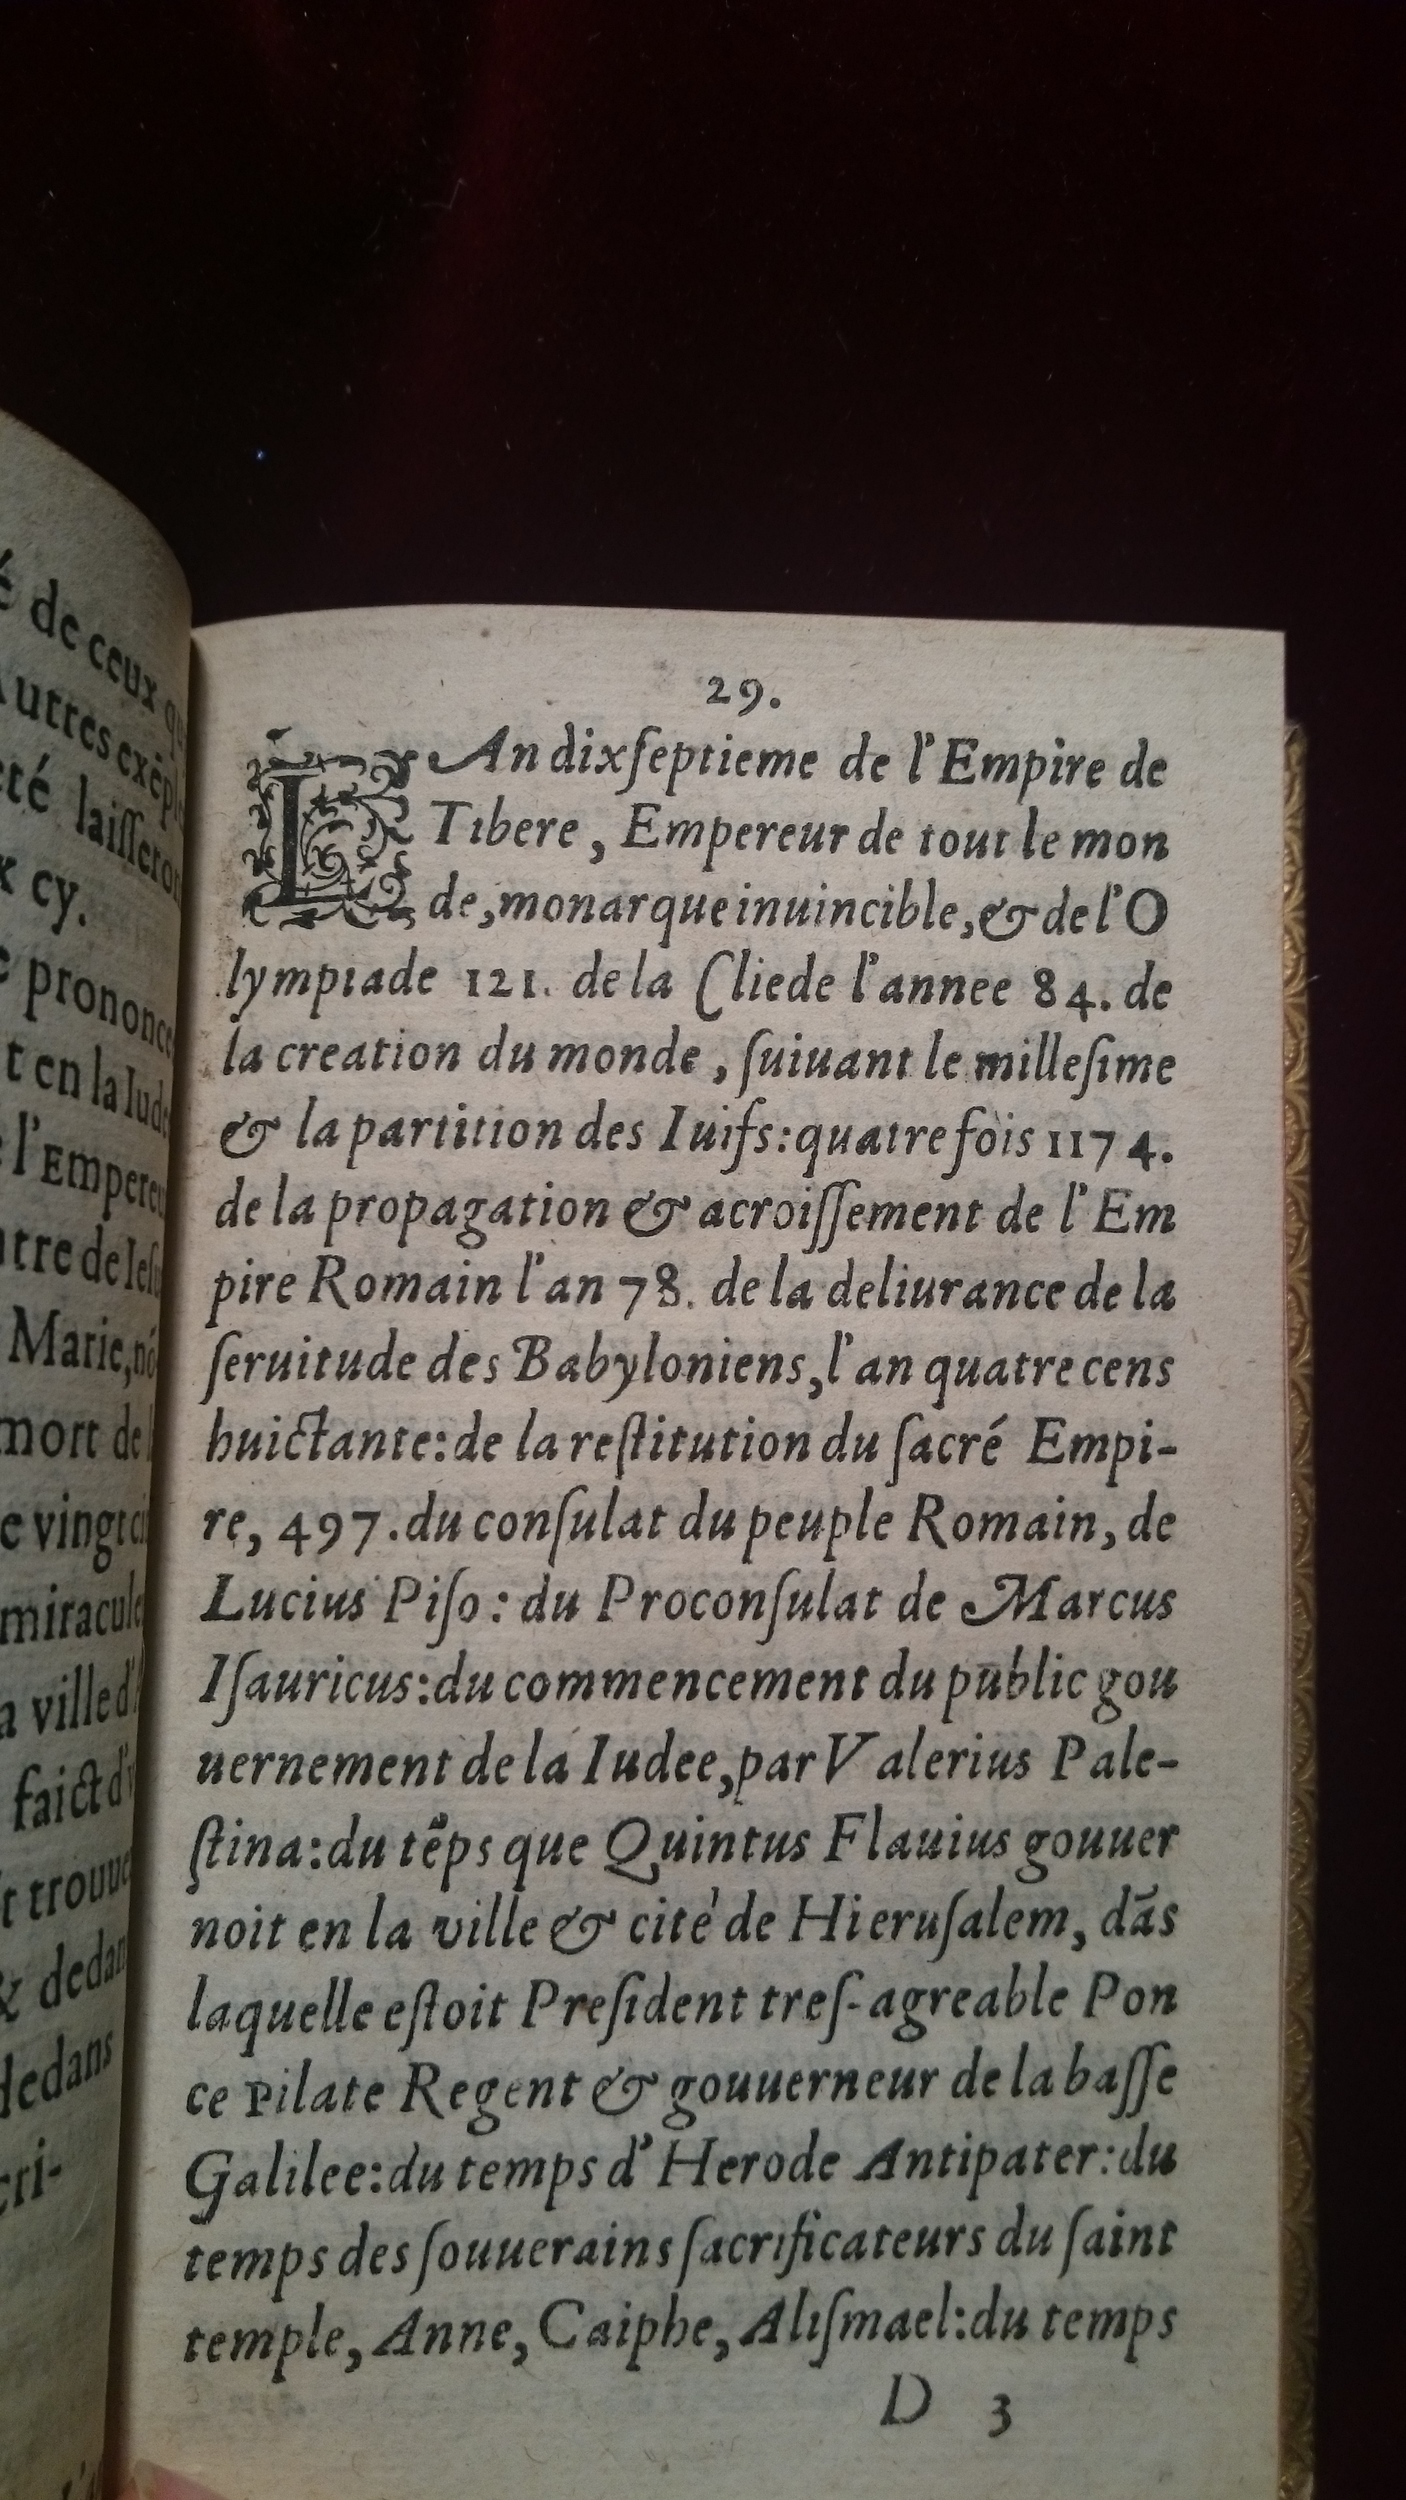 é de ceux
utres exẽpl
té laisseron
x cy.
prononce
t en la Iud
l'Empereu
tre de Ies
Marie, nõ
mort de
e vingt
miracule
a ville d'
faict d'v
t trouue
& dedan
dedans
cri-
29.
L'An dixſeptieme de l'Empire de
Tibere, Empereur de tout le mon
de, monarque inuincible, & de l'O
lympiade 121. de la Cliede l'annee 84. de
la creation du monde, ſuiuant le milleſime
& la partition des Iuifs: quatre fois 1174.
de la propagation & acroiſſement de l'Em
pire Romain l'an 78. de la deliurance de la
ſeruitude des Babyloniens, l'an quatre cens
huictante: de la reſtitution du ſacré Empi-
re, 497. du conſulat du peuple Romain, de
Lucius Piſo: du Proconſulat de Marcus
Iſauricus: du commencement du public gou
uernement de la Iudee, par Valerius Pale-
ſtina: du tẽps que Quintus Flauius gouuer
noit en la ville & cité de Hieruſalem, dãs
laquelle eſtoit Preſident treſ-agreable Pon
ce Pilate Regent & gouuerneur de la baſſe
Galilee: du temps d'Herode Antipater: du
temps des ſouuerains ſacrificateurs du ſaint
temple, Anne, Caiphe, Aliſmael: du temps
D 3